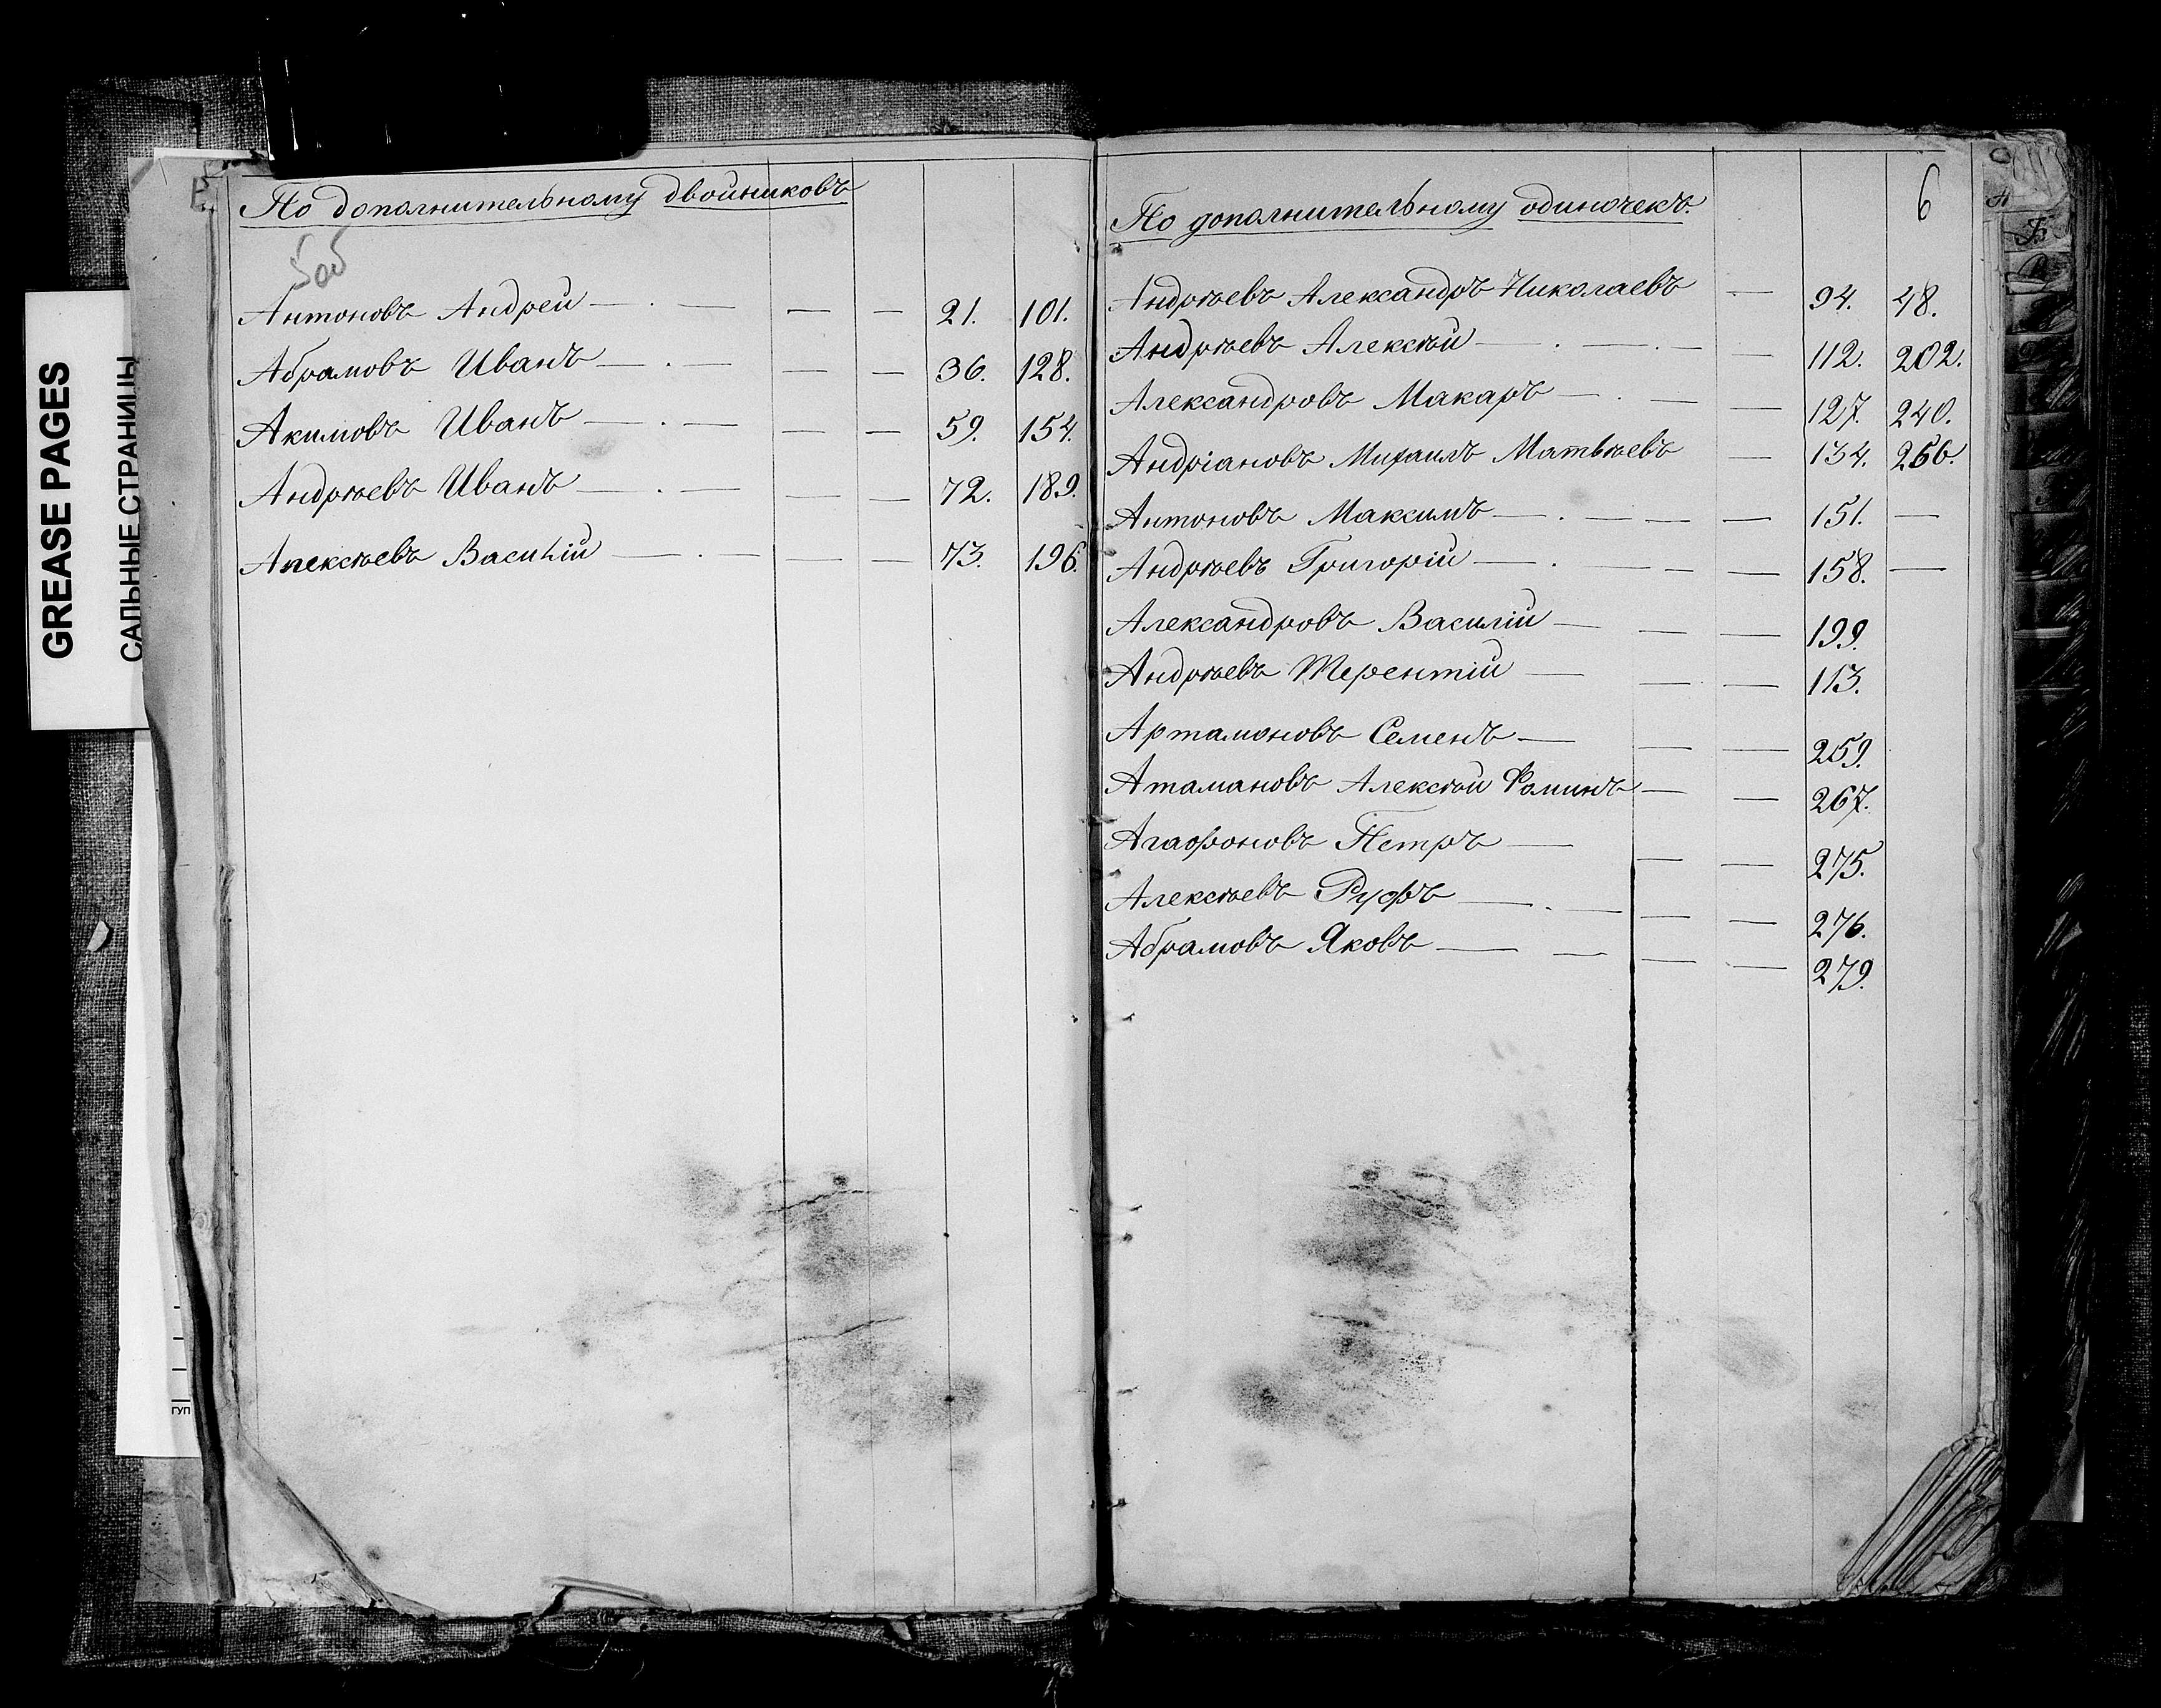 GREASE PAGES
САЛЬНЫЕ СТРАНИЦЫ
По дополнительному двойниковъ
5об
Антоновъ Андрей — . — — — 21. 101.
Абрамовъ Иванъ — . — — — 36. 128.
Акимовъ Иванъ — . — — — 59. 154.
Андрѣевъ Иванъ — . — — — 72. 189.
Алексѣевъ Василій — . — — — 73. 196.
6
По дополнительному одиночекъ.
Андрѣевъ Александръ Николаевъ — 94. 48.
Андрѣевъ Алексѣй — . — . — — 112. 202.
Александровъ Макаръ — . — — 127. 240.
Андріановъ Михаилъ Матвѣевъ — 134. 266.
Антоновъ Максимъ — . — — — 151. —
Андрѣевъ Григорій — . — — — 158. —
Александровъ Василій — — — 199.
Андрѣевъ Терентій — — — 113.
Артамоновъ Семенъ — — — 259.
Атамановъ Алексѣй Фоминъ — — 267.
Агафоновъ Петръ — — — 275.
Алексѣевъ Руфъ — . — — — 276.
Абрамовъ Яковъ — — — — 279.
ГУП